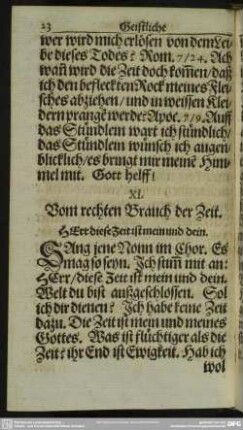 23 Geistliche
wer wird mich erlösen von dem Lei-
be dieses Todes? Rom. 7/24. Ach
wañ wird die Zeit doch kom̃en/ daß
ich den befleckten Rock meines Flei-
sches abziehen/ und in weissen Klei-
dern prangē werde? Apoc. 7/9. Auff
das Stündlem wart ich stündlich/
das Stündlem wünsch ich augen-
blicklich/ es bringt mir meinē Him-
mel mit. Gott helff!
XI.
Vom rechten Brauch der Zeit.
HErr diese Zeit ist mein und dein.
SAng jene Nonn im Chor. Es
mag so seyn. Ich stim̃ mit an:
HErr/ diese Zeit ist mein und dein.
Welt du bist außgeschlossen. Sol
ich dir dienen? Ich habe keine Zeit
dazu. Die Zeit ist mein und meines
Gottes. Was ist flüchtiger als die
Zeit? ihr End ist Ewigkeit. Hab ich
wol